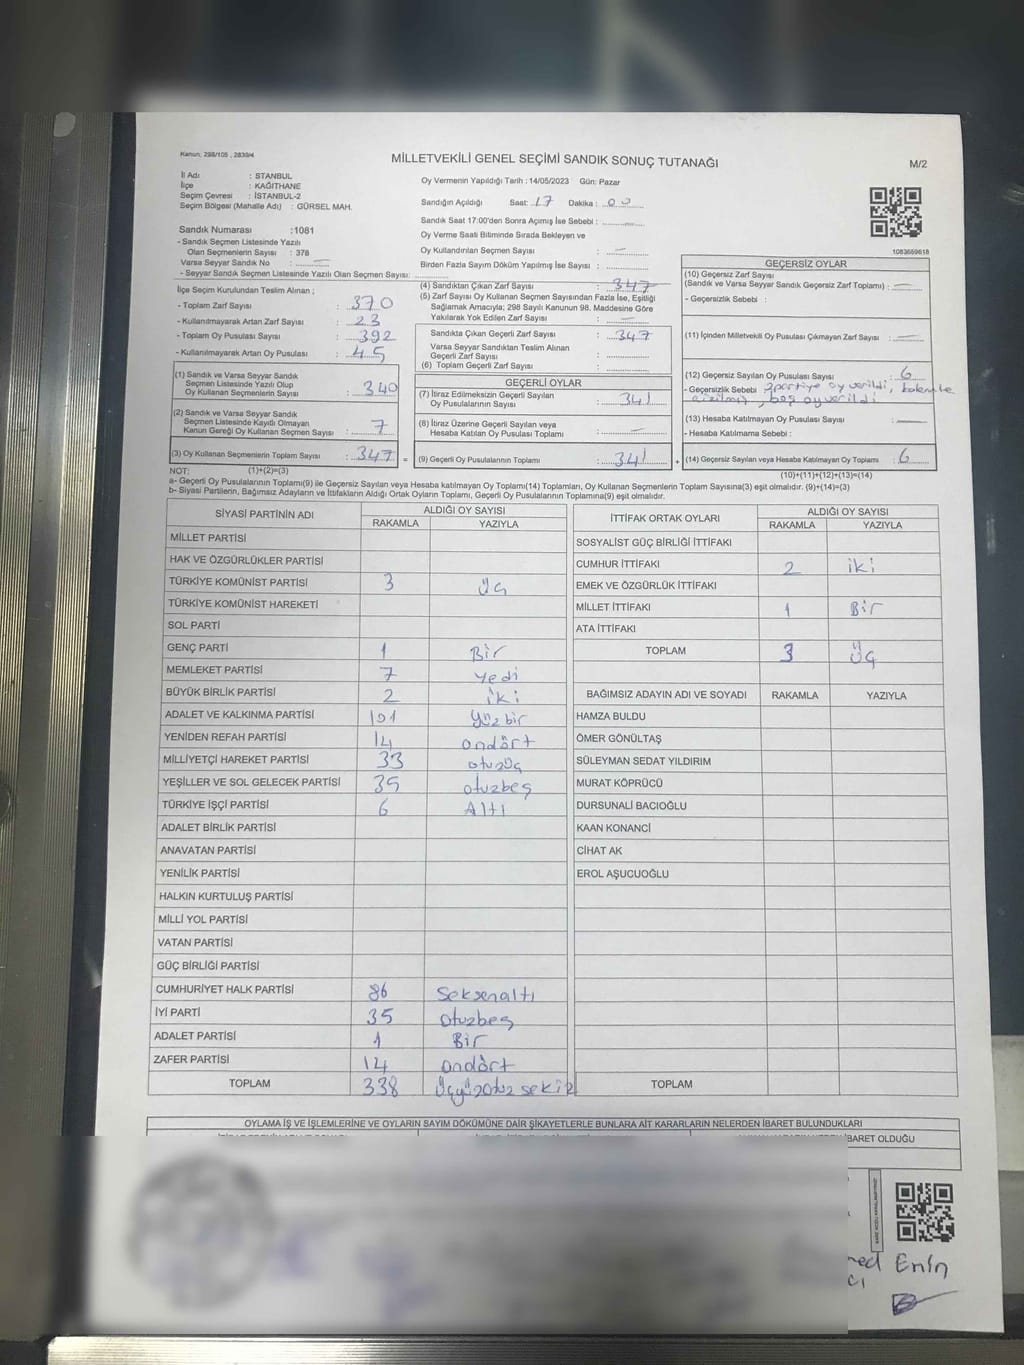 Kanun: 298/105 , 2839/4
MİLLETVEKİLİ GENEL SEÇİMİ SANDIK SONUÇ TUTANAĞI
M/2
İl Adı : STANBUL
İlçe : KAĞITHANE
Seçim Çevresi : İSTANBUL-2
Seçim Bölgesi (Mahalle Adı) : GÜRSEL MAH.
Sandık Numarası :1081
- Sandık Seçmen Listesinde Yazılı
Olan Seçmenlerin Sayısı : 378
Varsa Seyyar Sandık No :
- Seyyar Sandık Seçmen Listesinde Yazılı Olan Seçmen Sayısı:
Oy Vermenin Yapıldığı Tarih : 14/05/2023 Gün: Pazar
Sandığın Açıldığı Saat: 17 Dakika : 00
Sandık Saat 17:00'den Sonra Açımış İse Sebebi :
Oy Verme Saati Bitiminde Sırada Bekleyen ve
Oy Kullandırılan Seçmen Sayısı :
Birden Fazla Sayım Döküm Yapılmış İse Sayısı :
1083659618
İlçe Seçim Kurulundan Teslim Alınan ;
- Toplam Zarf Sayısı : 370
- Kullanılmayarak Artan Zarf Sayısı : 23
- Toplam Oy Pusulası Sayısı : 392
- Kullanılmayarak Artan Oy Pusulası : 45
(1) Sandık ve Varsa Seyyar Sandık
Seçmen Listesinde Yazılı Olup
Oy Kullanan Seçmenlerin Sayısı : 340
(2) Sandık ve Varsa Seyyar Sandık
Seçmen Listesinde Kayıtlı Olmayan
Kanun Gereği Oy Kullanan Seçmen Sayısı : 7
(3) Oy Kullanan Seçmenlerin Toplam Sayısı : 347 =
(4) Sandıktan Çıkan Zarf Sayısı : 347
(5) Zarf Sayısı Oy Kullanan Seçmen Sayısından Fazla İse, Eşitliği
Sağlamak Amacıyla; 298 Sayılı Kanunun 98. Maddesine Göre
Yakılarak Yok Edilen Zarf Sayısı :
Sandıkta Çıkan Geçerli Zarf Sayısı : 347
Varsa Seyyar Sandıktan Teslim Alınan
Geçerli Zarf Sayısı :
(6) Toplam Geçerli Zarf Sayısı :
GEÇERLİ OYLAR
(7) İtiraz Edilmeksizin Geçerli Sayılan
Oy Pusulalarının Sayısı : 341
(8) İtiraz Üzerine Geçerli Sayılan veya
Hesaba Katılan Oy Pusulası Toplamı :
(9) Geçerli Oy Pusulalarının Toplamı : 341 +
GEÇERSİZ OYLAR
(10) Geçersiz Zarf Sayısı
(Sandık ve Varsa Seyyar Sandık Geçersiz Zarf Toplamı) :
- Geçersizlik Sebebi :
(11) İçinden Milletvekili Oy Pusulası Çıkmayan Zarf Sayısı :
(12) Geçersiz Sayılan Oy Pusulası Sayısı : 6
- Geçersizlik Sebebi 2partiye oy verildi, kalemle
çizilmiş, boş oy verildi
(13) Hesaba Katılmayan Oy Pusulası Sayısı :
- Hesaba Katılmama Sebebi :
(14) Geçersiz Sayılan veya Hesaba Katılmayan Oy Toplamı : 6
NOT: (1)+(2)=(3)
(10)+(11)+(12)+(13)=(14)
a- Geçerli Oy Pusulalarının Toplamı(9) ile Geçersiz Sayılan veya Hesaba katılmayan Oy Toplamı(14) Toplamları, Oy Kullanan Seçmenlerin Toplam Sayısına(3) eşit olmalıdır. (9)+(14)=(3)
b- Siyasi Partilerin, Bağımsız Adayların ve İttifakların Aldığı Ortak Oyların Toplamı, Geçerli Oy Pusulalarının Toplamına(9) eşit olmalıdır.
SİYASİ PARTİNİN ADI
ALDIĞI OY SAYISI
RAKAMLA YAZIYLA
MİLLET PARTİSİ
HAK VE ÖZGÜRLÜKLER PARTİSİ
TÜRKİYE KOMÜNİST PARTİSİ 3 Üç
TÜRKİYE KOMÜNİST HAREKETİ
SOL PARTİ
GENÇ PARTİ 1 Bir
MEMLEKET PARTİSİ 7 yedi
BÜYÜK BİRLİK PARTİSİ 2 iki
ADALET VE KALKINMA PARTİSİ 101 yüzbir
YENİDEN REFAH PARTİSİ 14 ondört
MİLLİYETÇİ HAREKET PARTİSİ 33 otuzüç
YEŞİLLER VE SOL GELECEK PARTİSİ 35 otuzbeş
TÜRKİYE İŞÇİ PARTİSİ 6 Altı
ADALET BİRLİK PARTİSİ
ANAVATAN PARTİSİ
YENİLİK PARTİSİ
HALKIN KURTULUŞ PARTİSİ
MİLLİ YOL PARTİSİ
VATAN PARTİSİ
GÜÇ BİRLİĞİ PARTİSİ
CUMHURİYET HALK PARTİSİ 86 Seksenaltı
İYİ PARTİ 35 otuzbeş
ADALET PARTİSİ 1 Bir
ZAFER PARTİSİ 14 ondört
TOPLAM 338 Üçyüzotuz sekiz
İTTİFAK ORTAK OYLARI
ALDIĞI OY SAYISI
RAKAMLA YAZIYLA
SOSYALİST GÜÇ BİRLİĞİ İTTİFAKI
CUMHUR İTTİFAKI 2 iki
EMEK VE ÖZGÜRLÜK İTTİFAKI
MİLLET İTTİFAKI 1 Bir
ATA İTTİFAKI
TOPLAM 3 Üç
BAĞIMSIZ ADAYIN ADI VE SOYADI RAKAMLA YAZIYLA
HAMZA BULDU
ÖMER GÖNÜLTAŞ
SÜLEYMAN SEDAT YILDIRIM
MURAT KÖPRÜCÜ
DURSUNALİ BACIOĞLU
KAAN KONANCİ
CİHAT AK
EROL AŞUCUOĞLU
TOPLAM
OYLAMA İŞ VE İŞLEMLERİNE VE OYLARIN SAYIM DÖKÜMÜNE DAİR ŞİKAYETLERLE BUNLARA AİT KARARLARIN NELERDEN İBARET BULUNDUKLARI
İBARET OLDUĞU
Emin